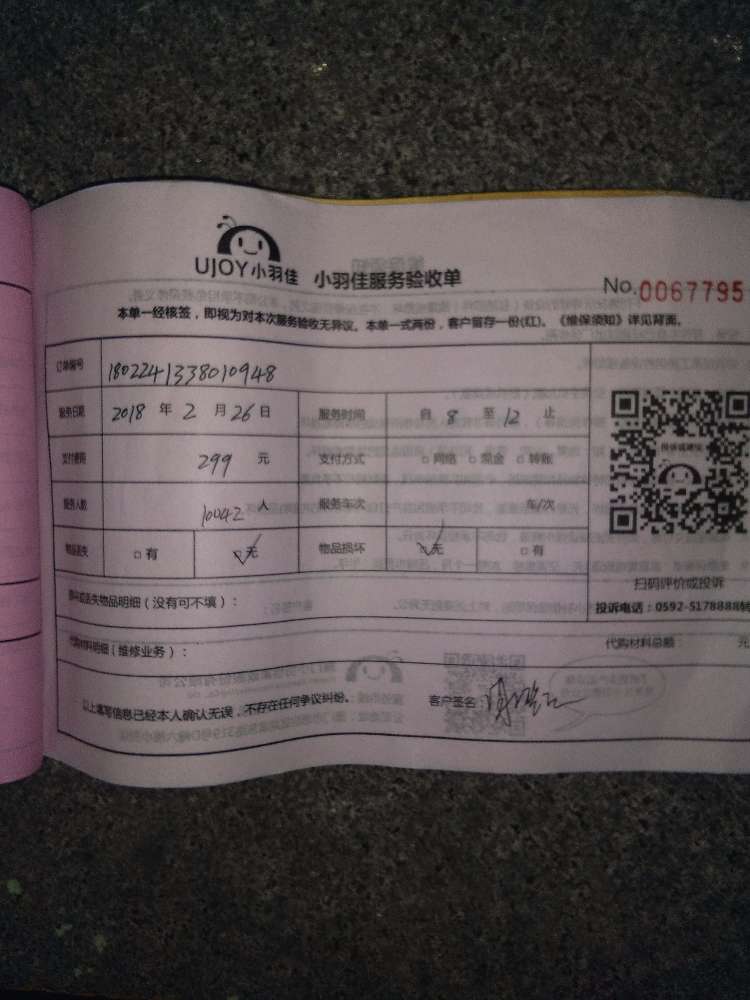 UJOY小羽佳 小羽佳服务验收单
No.0067795
本单一经核签，即视为对本次服务验收无异议。本单一式两份，客户留存一份(红)。《维保须知》详见背面。
订单编号 1802241338010948
服务日期 2018 年 2 月 26 日 服务时间 自 8 至 12 止
支付费用 299 元 支付方式 □网络 □现金 □转账
服务人数 10042 人 服务车次 车/次
物品丢失 □有 □无 物品损坏 □无 □有
投诉或建议
扫码评价或投诉
投诉电话：0592-5178888转
损坏或丢失物品明细（没有可不填）：
代购材料明细（维修业务）： 代购材料总额： 元
以上填写信息已经本人确认无误，不存在任何争议纠纷。 客户签名：